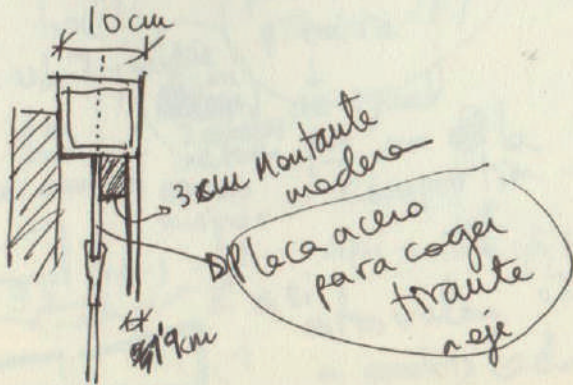 10cm
3 cm Montante
madera
Placa acero
para coger
tirante
eje
1'9cm